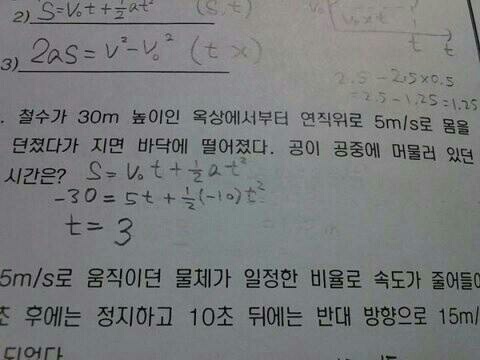 2) S=V₀t+½at² (S, t)
V₀
V₀×t
t t
3) 2aS=V²-V₀² (t x)
2.5-2.5×0.5
=2.5-1.25=1.25
. 철수가 30m 높이인 옥상에서부터 연직위로 5m/s로 몸을
던졌다가 지면 바닥에 떨어졌다. 공이 공중에 머물러 있던
시간은? S=V₀t+½at²
-30=5t+½(-10)t²
t=3
5m/s로 움직이던 물체가 일정한 비율로 속도가 줄어들어
초 후에는 정지하고 10초 뒤에는 반대 방향으로 15m/
되었다